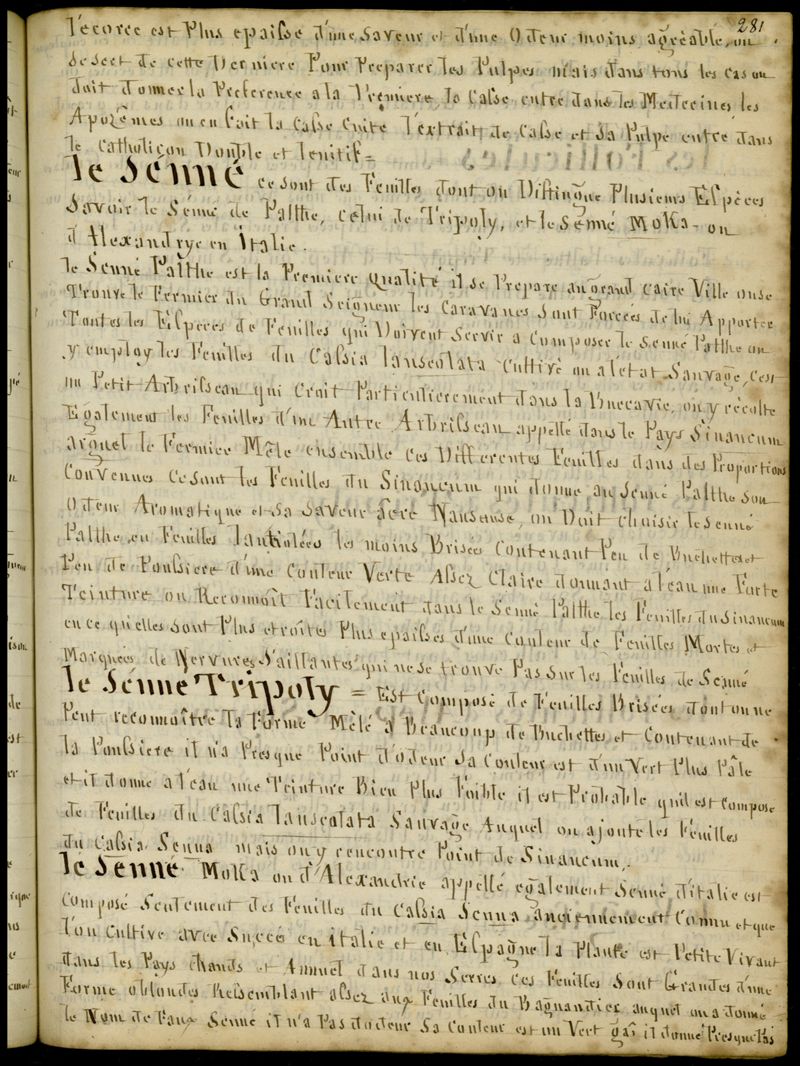 281
l'ecorce est Plus epaisse d'une saveur et d'une Odeur moins agréable, on
se sert de cette Derniere Pour Preparer les Pulpes mais dans tous les cas on
doit donner la Preference a la Premiere la Casse entre dans les Medecines les
Apozêmes on en fait la Casse Cuite l'extrait de Casse et sa Pulpe entre dans
le Catholicon Double et lenitif =
le Sénné ce sont des Feuilles dont on Distingue Plusieurs Espèces
Savoir le Séné de Palthe, celui de Tripoly, et le Senné Moka- ou
d'Alexandrye en Italie.
le Senné Palthe est la Premiere qualité il se Prepare au grand Caire Ville ou se
Trouve le Fermier du Grand Seigneur les Caravanes sont Forcées de lui Apporter
Toutes les Especes de Feuilles qui Doivent Servir a Composer le Senné Palthe on
y employ les Feuilles du Cassia lanseolata Cultivé ou a l'etat Sauvage, C'est
un Petit Arbrisseau qui Croit Particulierement dans la on y récolte
Egalement les Feuilles d'un Autre Arbrisseau appellé dans le Pays Sinancum
arguel le Fermier Mêle ensemble ces Differentes Feuilles dans des Proportions
Convennes ce sont les Feuilles du Sinancum qui donne au Senné Palthe son
Odeur Aromatique et sa Saveur acre Nauseuse, on Doit choisir le Senné
Palthe en Feuilles les moins Brisées Contenant Peu de Buchettes et
Peu de Poussiere d'une Couleur Verte Assez Claire donnant a l'eau une Forte
Teinture on Reconnoît Facilement dans le Senné Palthe les Feuilles du Sinancum
en ce qu'elles sont Plus etroites Plus epaisses d'une Couleur de Feuilles Mortes et
Marquées de Nervures Saillantes qui ne se trouve Pas sur les Feuilles de Senné
le Sénne Tripoly = Est Composé de Feuilles Brisées dont on ne
Peut reconnoître la Forme Mêlé a Beaucoup de Buchettes et Contenant de
la Poussiere il n'a Presque Point d'odeur sa Couleur est d'un Vert Plus Pâle
et il donne a l'eau une Teinture Bien Plus Foible il est Probable qu'il est Compose
de Feuilles du Cassia lanseolata Sauvage Auquel on ajoute les Feuilles
du Cassia Senna mais on y rencontre Point de Sinancum,.
le Senne Moka ou d'Alexandrie appellé egalement Senné d'italie est
Composé Seulement des Feuilles du Cassia Senna anciennement Connu et que
l'on Cultive avec Succés en italie et en Espagne la Plante est Petite Vivant
dans les Pays chauds et Annuel dans nos Serres ces Feuilles Sont Grandes d'une
Forme oblondes Ressemblant assez aux Feuilles du Bagnaudier auquel on a donné
le Nom de Faux Senné il n'a Pas d'odeur Sa Couleur est un Vert gai il donne Presque Pas